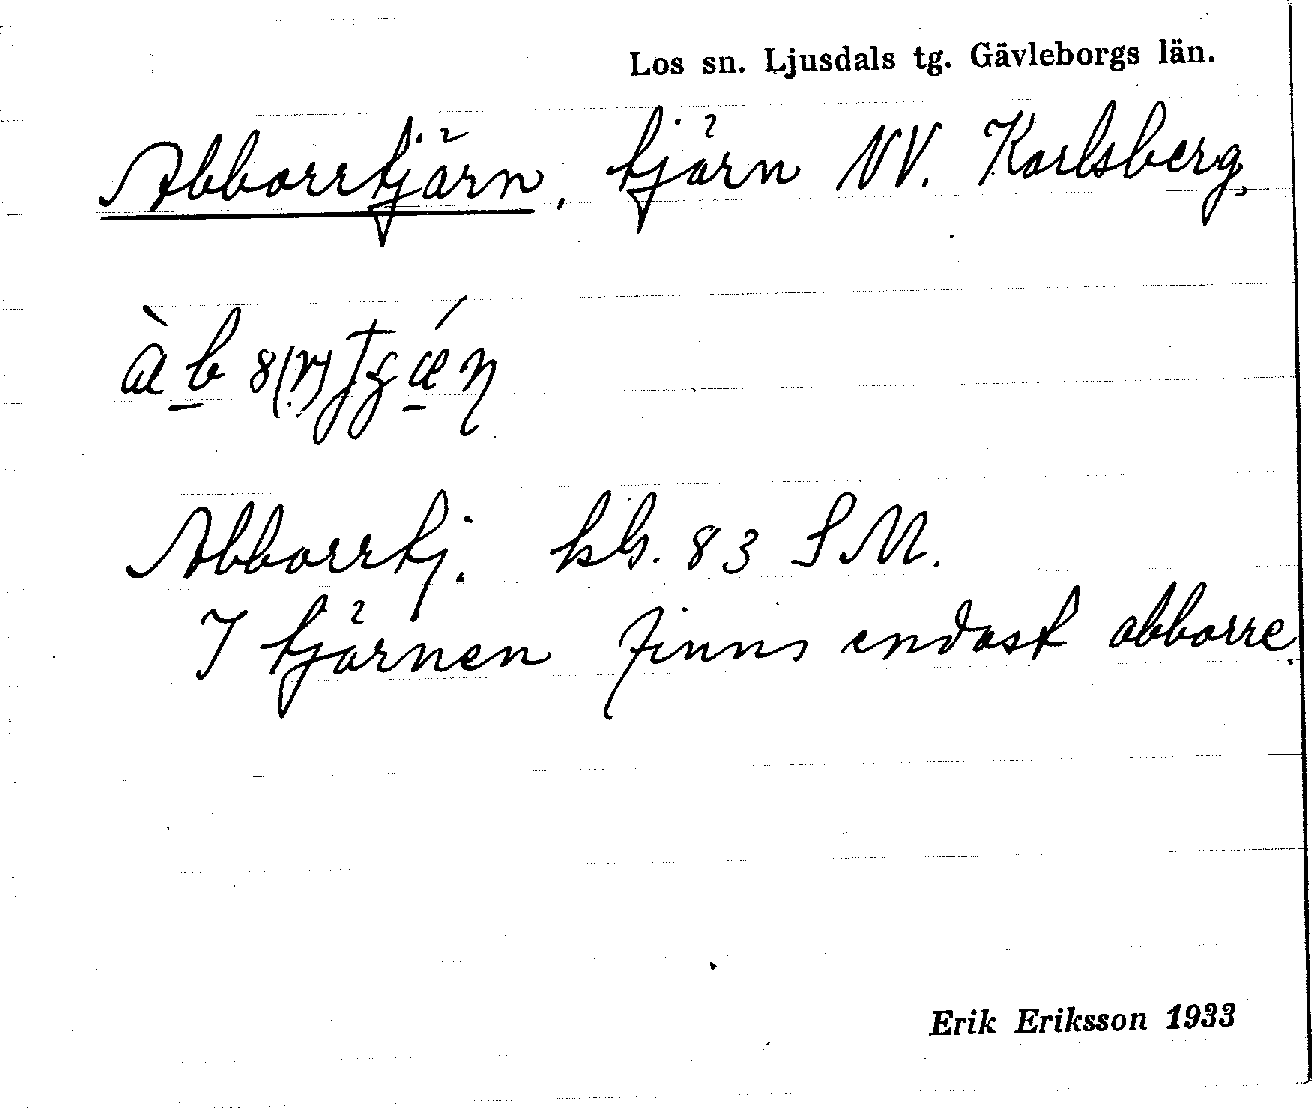 Los sn. Ljusdals tg. Gävleborgs län.
Abborrtjärn, tjärn NV. Karlsberg,
Abborrtj. kbl. 83 SM.
I tjärnen finns endast abborre.
Erik Eriksson 1933